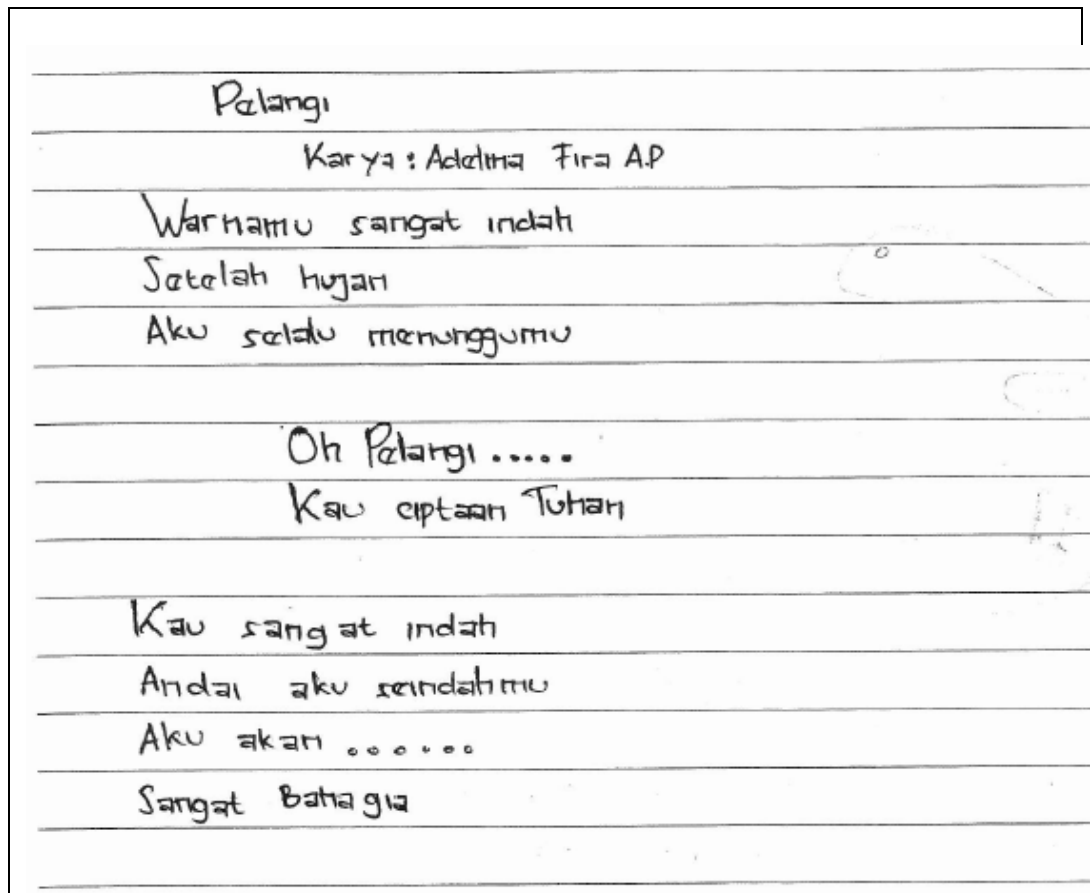 Pelangi
Karya : Adelina Fira A.P
Warnamu sangat indah
Setelah hujan
Aku selalu menunggumu
Oh Pelangi .....
Kau ciptaan Tuhan
Kau sangat indah
Andai aku seindahmu
Aku akan ......
Sangat Bahagia